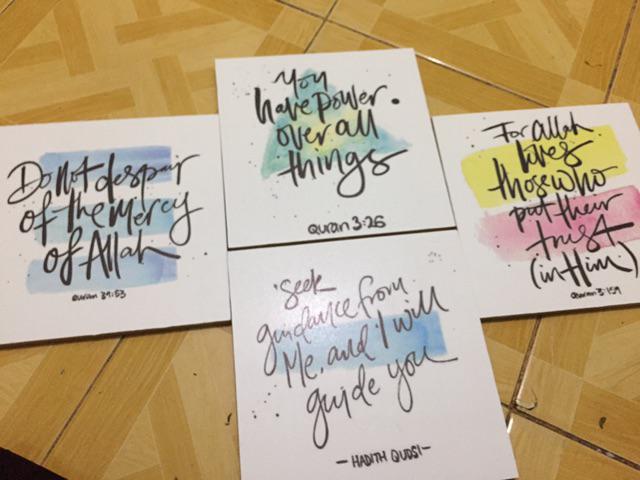 Do Not despair
of the Mercy
of Allah
Quran 39:53
You
have power
over all
things
Quran 3:26
For Allah
loves
those who
put their
trust
(in Him)
Quran 3:159
Seek
guidance from
Me, and I will
guide you
— HADITH QUDSI —